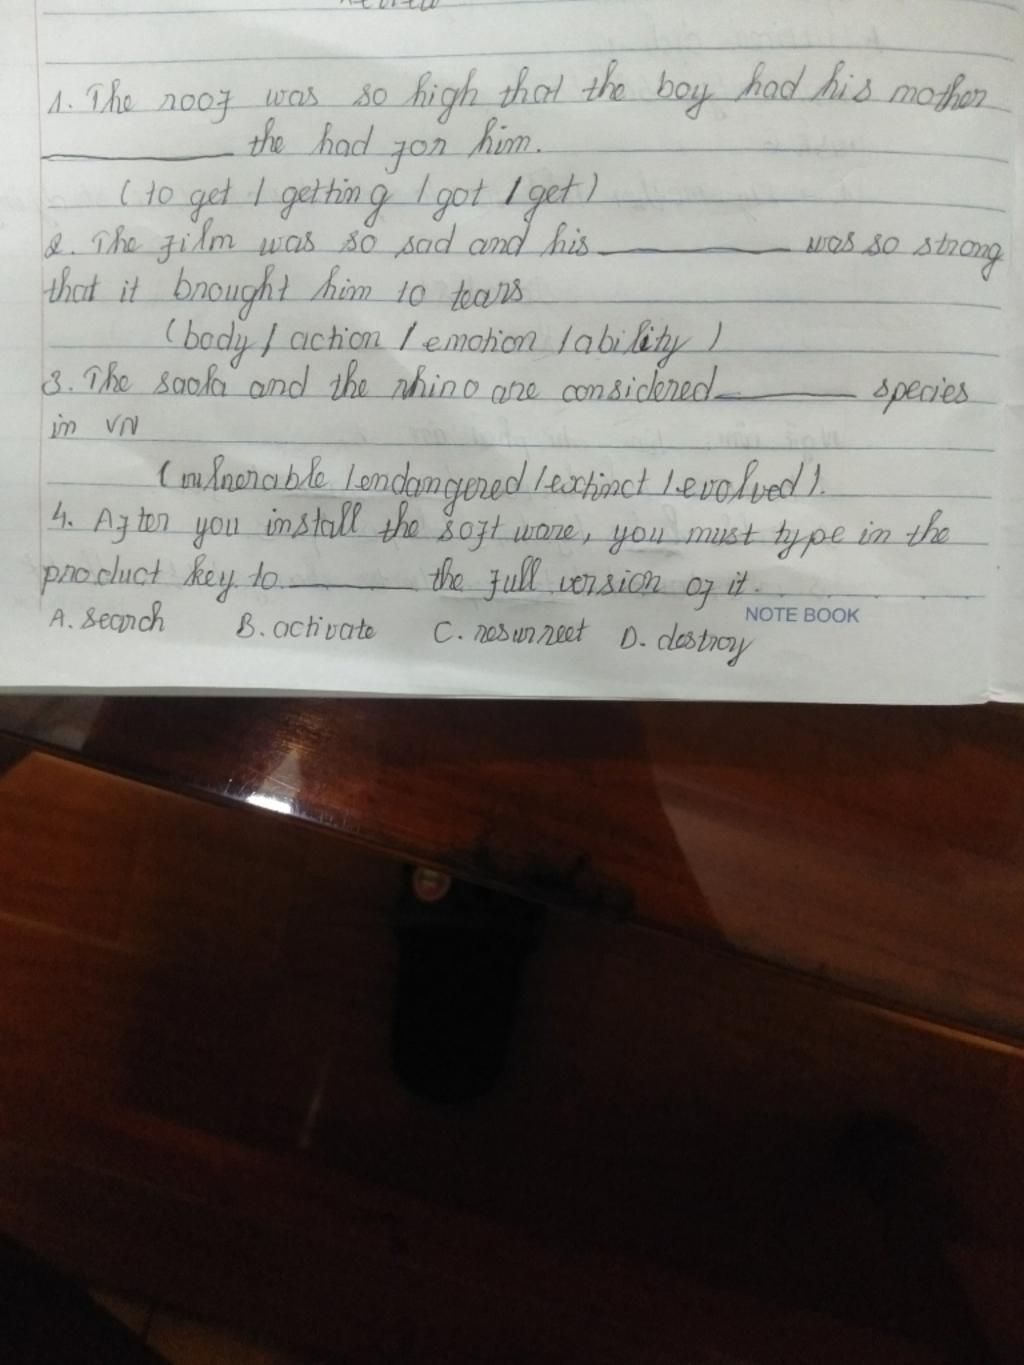 1. The roof was so high that the boy had his mother
________ the had for him.
( to get / getting / got / get )
2. The film was so sad and his ________ was so strong
that it brought him to tears
( body / action / emotion / ability )
3. The saola and the rhino are considered ________ species
in VN
( vulnerable / endangered / extinct / evolved ).
4. After you install the soft ware, you must type in the
product key to ________ the full version of it.
NOTE BOOK
A. search B. activate C. resurrect D. destroy